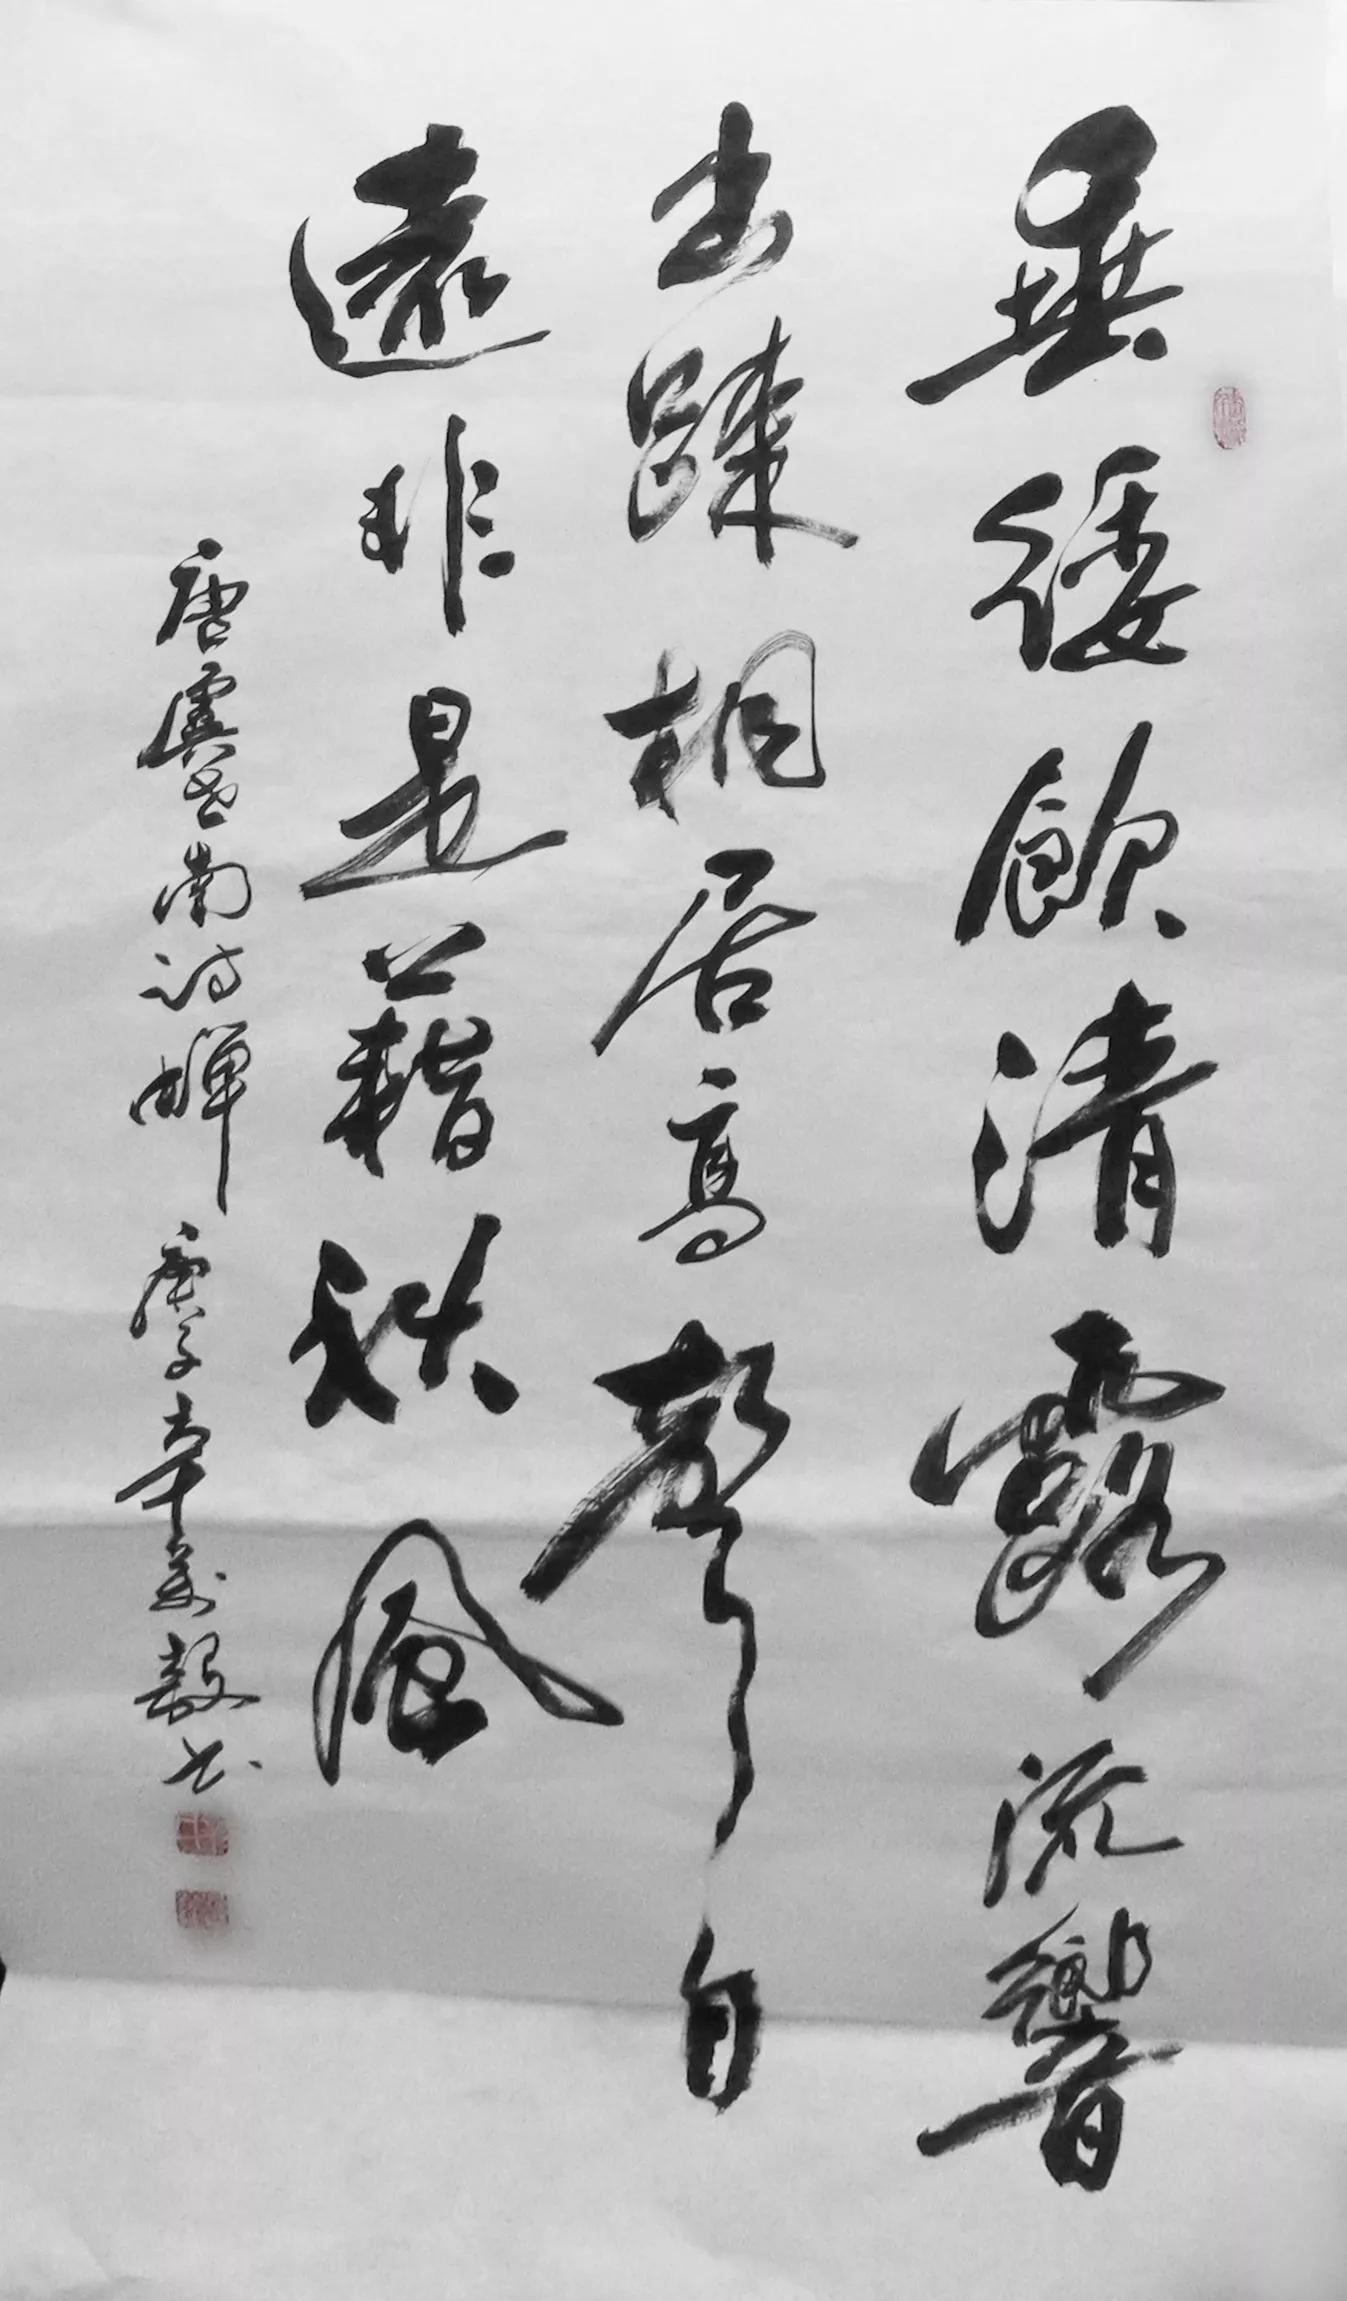 垂緌飲清露流響
出踈桐居高聲自
遠非是藉秋風
唐虞世南詩蟬 庚子